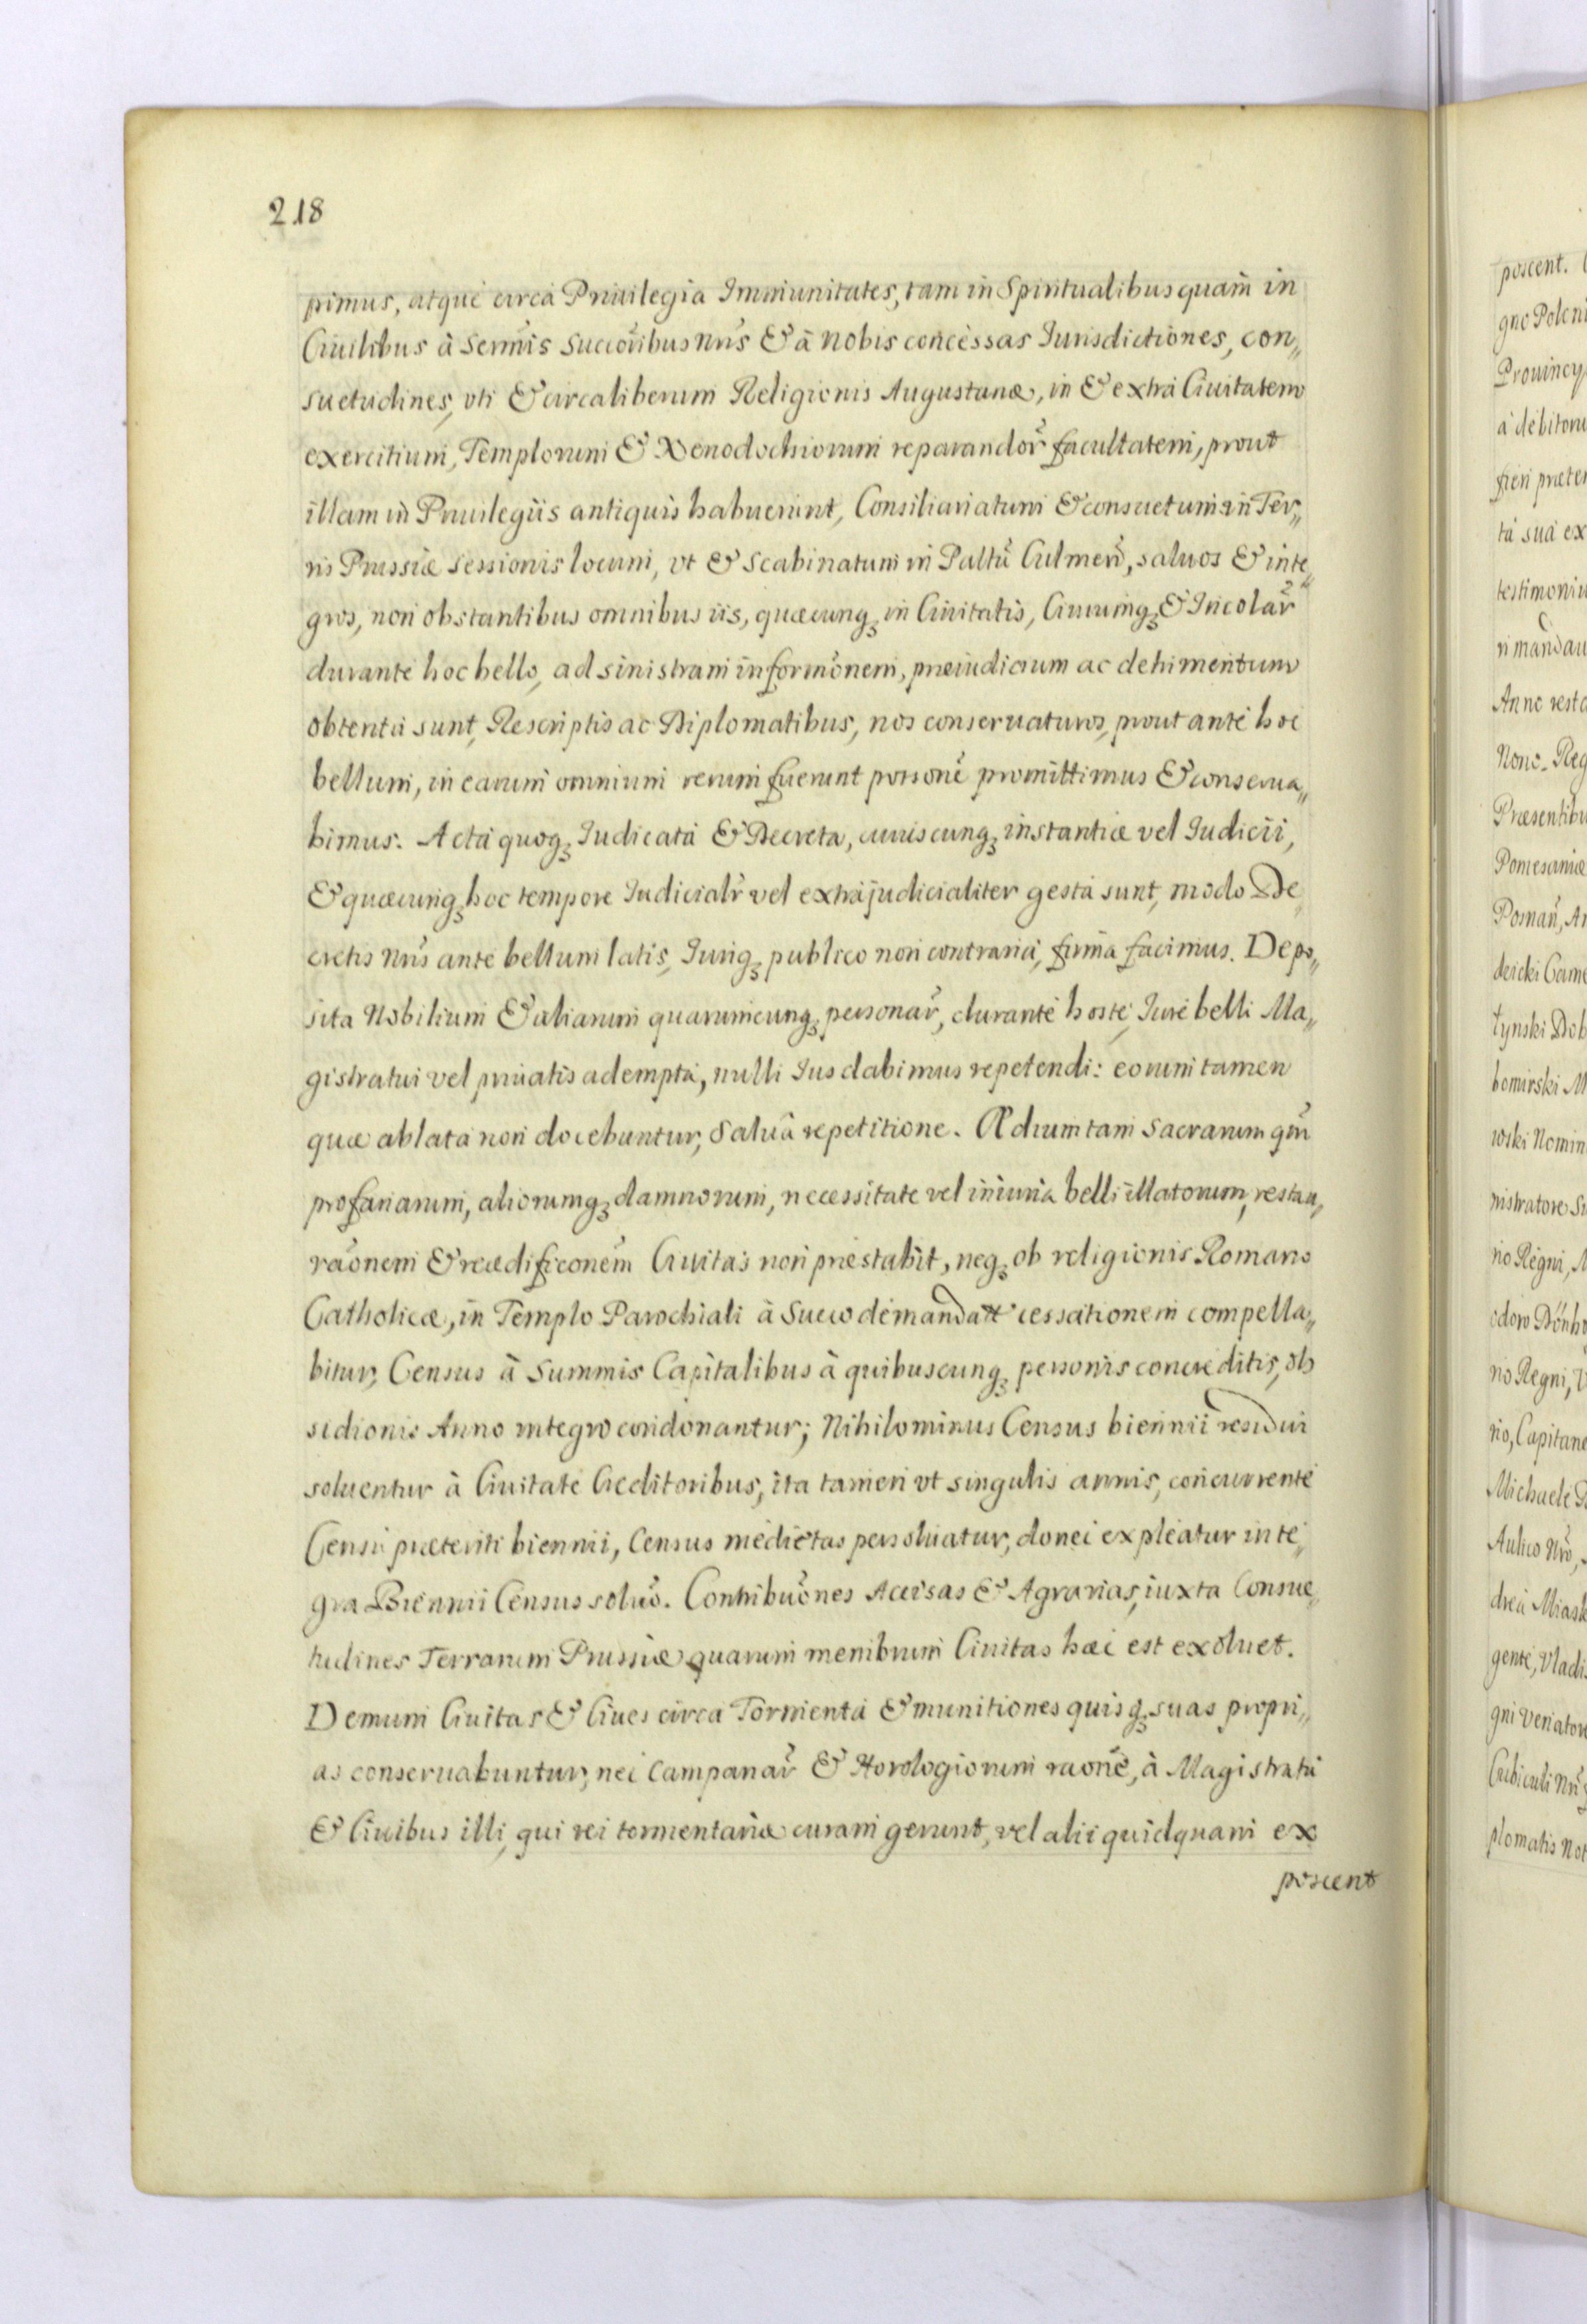 218
pimus, atque circa Priuilegia Immunitates, tam in Spiritualibus quam in
Ciuilibus à Sermis Succoribus nris & à nobis concessas Iurisdictiones, con„
suetudines, vti & circa liberum Religionis Augustanæ, in & extra Ciuitatem
exercitium, Templorum & Xenodochiorum reparandor̃ facultatem, prout
illam in Priuilegiis antiquis habuerint, Consiliariatum & consuetum in Ter„
ris Prussiæ sessionis locum, vt & Scabinatum in Paltũ Culmeñ, saluos & inte„
gros, non obstantibus omnibus iis, quæcunq; in Ciuitatis, Ciuiumq; & Incolar̃
durante hoc bello, ad sinistram informõnem, præiudicium ac detrimentum
obtenta sunt, Rescriptis ac Diplomatibus, nos conseruaturos, prout ante hoc
bellum, in earum omnium rerum fuerunt possoñe promittimus & conserua„
bimus. Acta quoq; Iudicata & Decreta, cuiuscunq; instantiæ vel Iudicii,
& quæcunq; hoc tempore Iudicialr̃ vel extrajudicialiter gesta sunt, modo De„
cretis nris ante bellum latis, Iuriq; publico non contraria, firma facimus. Depo„
sita Nobilium & aliarum quarumcunq; personar̃, durante hoste, Iure belli Ma„
gistratui vel priuatis adempta, nulli Ius dabimus repetendi: eorum tamen
quæ ablata non docebuntur, Saluâ repetitione. Ædium tam Sacrarum qm̃
profanarum, aliorumq; damnorum, necessitate vel iniuria belli illatorum, restau„
raõnem & reædificonẽm Ciuitas non præstabit, neq; ob religionis Romano
Catholicæ, in Templo Parochiali à Sueco demandatã cessationem compella„
bitur, Census à Summis Capitalibus à quibuscunq; personis concreditis, ob
sidionis Anno integro condonantur; Nihilominus Census biennii residui
soluentur à Ciuitate Creditoribus, ita tamen vt singulis annis, concurrente
Censu præteriti biennii, Census medietas persoluatur, donec expleatur inte„
gra Biennii Census soluõ. Contribuõnes Accisas & Agrarias, iuxta Consue„
tudines Terrarum Prussiæ quarum membrum Ciuitas hæc est exoluet.
Demum Ciuitas & Ciues circa Tormenta & munitiones quisq; suas propri„
as conseruabuntur, nec Campanar̃ & Horologiorum raone, à Magistratu
& Ciuibus illi, qui rei tormentariæ curam gerunt, vel alii quidquam ex
poscent
poscent.
gno Poloni
Prouincy
à debitoru
fieri præter
ta sua ex
testimoniu
ri mandau
Anno resta
Nono. Reg
Præsentibu
Pomesaniæ
Posnañ, An
deicki Came
tynski Dob
bomirski M
wski Nomin
nistratore Su
rio Regni, M
odoro Dönho
rio Regni, V
rio, Capitane
Michaele
Aulico Nrõ,
drea Miask
gente, Vladis
gni Venatore
Cubiculi Nri
plomatis Not